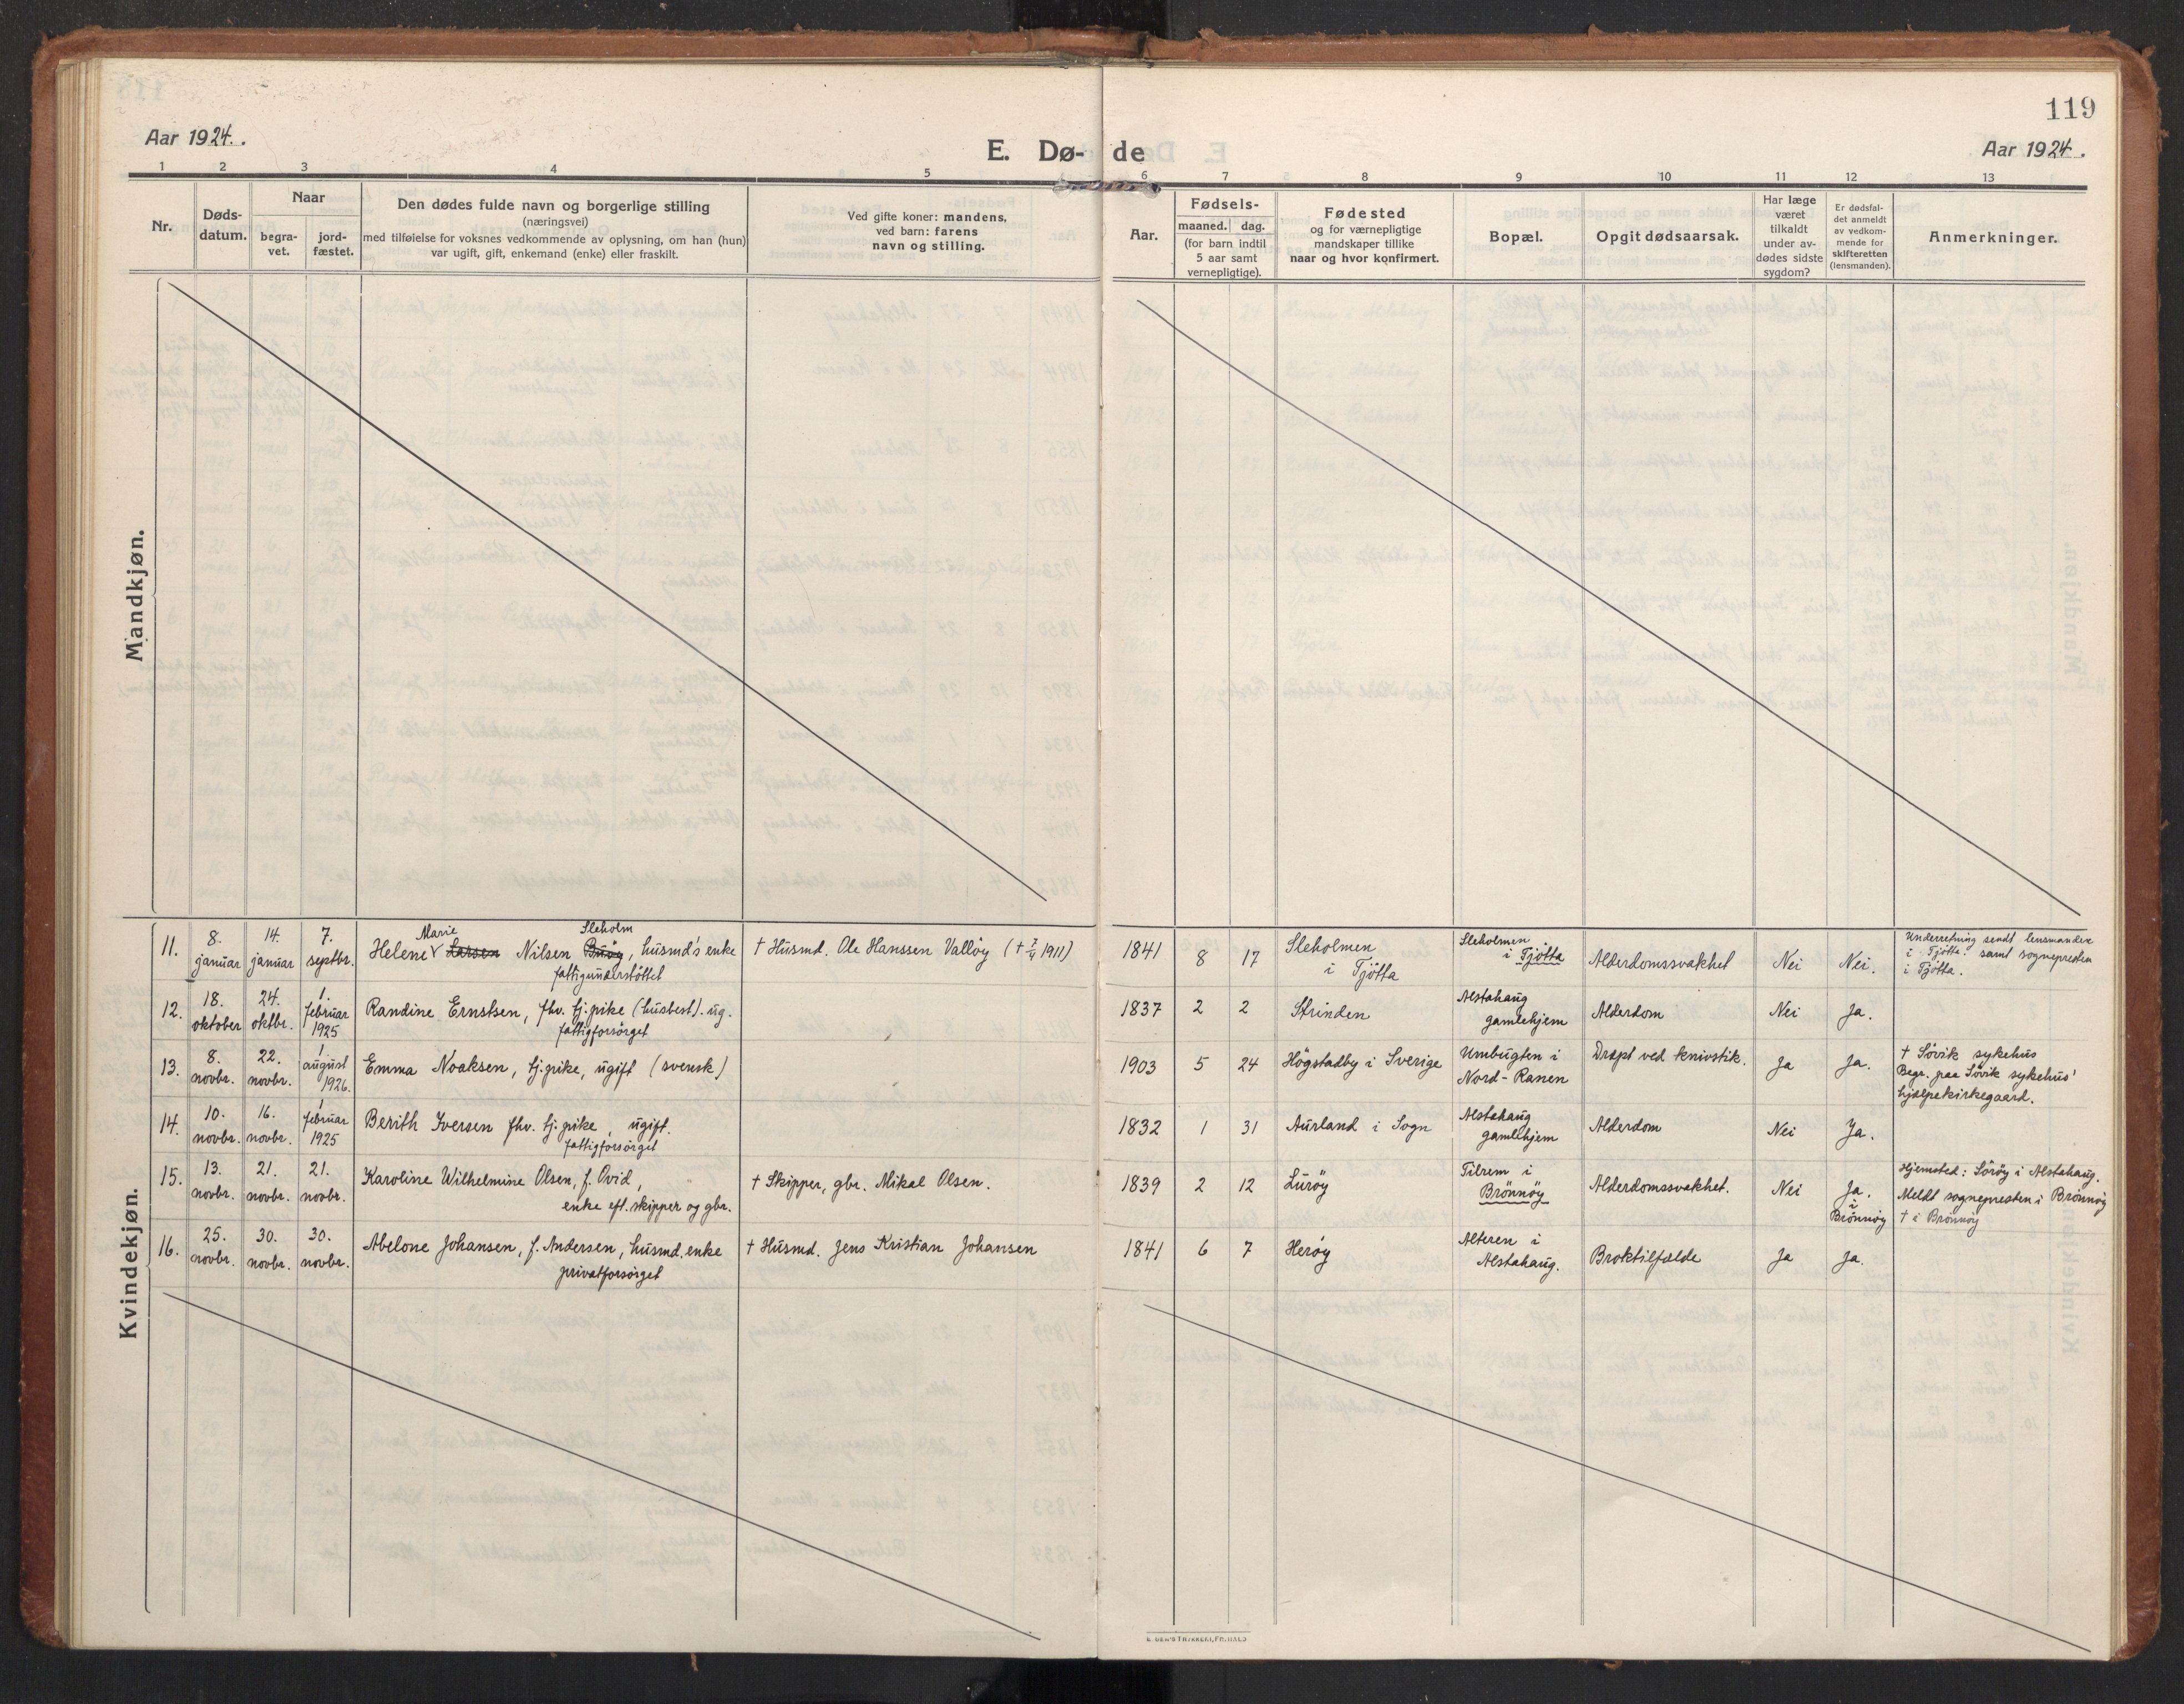 119
Aar 1924.
E. Dø-de
Aar 1924.
1 2 3 4 5 6 7 8 9 10 11 12 13
Nr.
Døds-
datum.
Naar
begra-
vet.
jord-
fæstet.
Den dødes fulde navn og borgerlige stilling
(næringsvei)
med tilføielse for voksnes vedkommende av oplysning, om han (hun)
var ugift, gift, enkemand (enke) eller fraskilt.
Ved gifte koner: mandens,
ved barn: farens
navn og stilling.
Aar.
Fødsels-
maaned. dag.
(for barn indtil
5 aar samt
vernepligtige).
Fødested
og for værnepligtige
mandskaper tillike
naar og hvor konfirmert.
Bopæl.
Opgit dødsaarsak.
Har læge
været
tilkaldt
under av-
dødes sidste
sygdom?
Er dødsfal-
det anmeldt
av vedkom-
mende for
skifteretten
(lensmanden).
Anmerkninger.
Mandkjøn.
Kvindekjøn.
11.
8.
januar
14.
januar
7.
septbr.
Marie Sleholm
Helene Larsen Nilsen Buøy, husmd's enke
fattigunderstöttet
† Husmd. Ole Hanssen Vallöy († 7/4 1911)
1841 8 17
Sleholmen
i Tjötta
Sleholmen
i Tjötta
Alderdomssvakhet
Nei
Nei.
Underretning sendt lensmanden
i Tjötta samt sognepresten
i Tjötta.
12.
18.
oktober
24.
oktbr.
1.
februar
1925
Randine Ernstsen, fhv. tj.pike (husbest). ug.
fattigforsörget
1837 2 2
Strinden
Alstahaug
gamlehjem
Alderdom
Nei
Ja.
13.
8.
novbr.
22.
novbr.
1
august
1926.
Emma Noaksen, tj.pike, ugift (svensk)
1903 5 24
Högstadby i Sverige
Umbugten i
Nord-Ranen
Dræpt ved knivstik.
Ja
Ja.
† Sövik sykehus
Begr. paa Sövik sykehus'
hjælpekirkegaard.
14.
10.
novbr.
16.
novbr.
1
februar
1925
Berith Iversen fhv. tj.pike, ugift.
fattigforsörget
1832 1 31
Aurland i Sogn
Alstahaug
gamlehjem
Alderdom
Nei
Ja.
15.
13.
novbr.
21.
novbr.
21.
novbr.
Karoline Wilhelmine Olsen, f. Ovid,
enke eft. skipper og gbr.
† Skipper, gbr. Mikal Olsen.
1839 2 12
Luröy
Tilrem i
Brönnöy
Alderdomssvakhet.
Nei
Ja.
i
Brönnöy
Hjemsted: Söröy i Alstahaug.
Meldt sognepresten i Brönnöy
† i Brönnöy
16.
25.
novbr.
30.
novbr.
30.
novbr.
Abelone Johansen, f. Andersen, husmd. enke
privatforsörget
† Husmd. Jens Kristian Johansen
1841 6 7
Heröy
Alteren i
Alstahaug.
Broktilfælde
Ja
Ja.